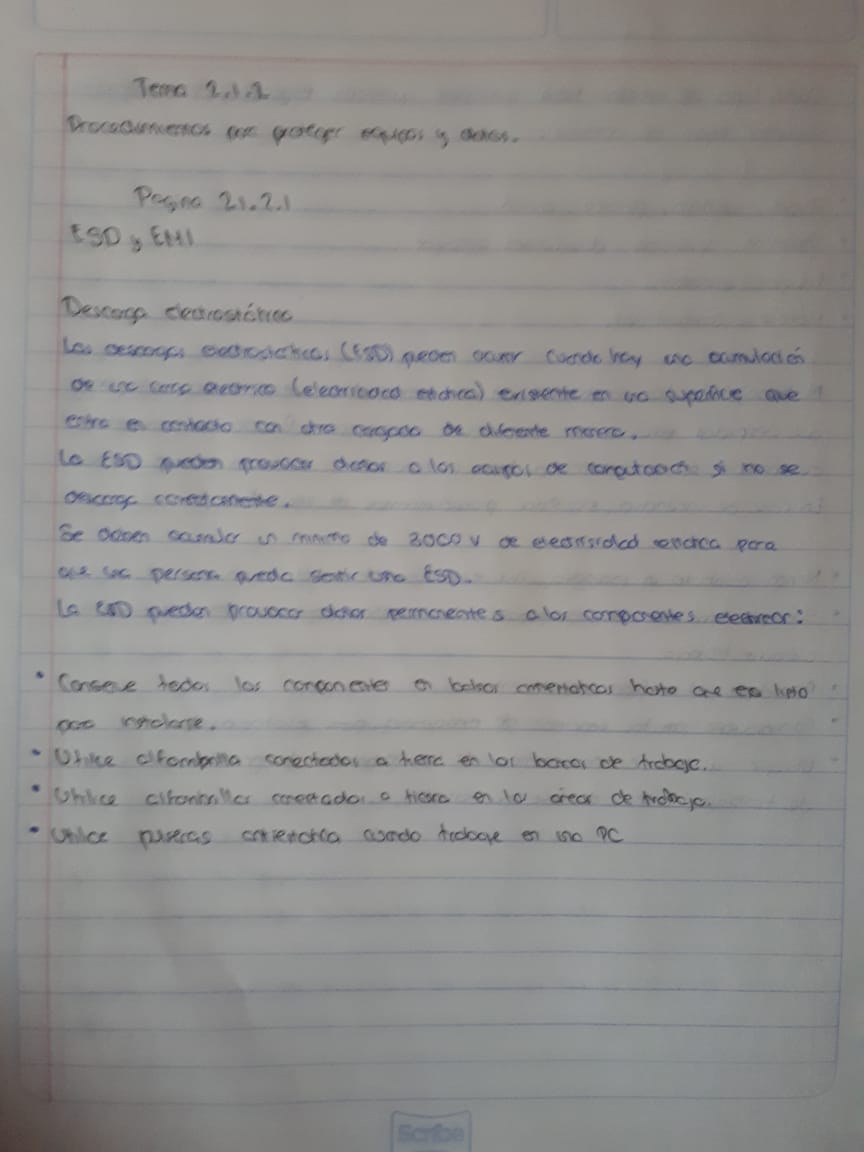 Tema 2.1.2
Procedimientos para proteger equipos y datos.
Pagina 2.1.2.1
ESD y EMI
Descarga electrostática
Las descargas electrostáticas (ESD) pueden ocurrir cuando hay una acumulación
de una carga electrica (electricidad estatica) existente en una superficie que
entra en contacto con otra cargada de diferente manera.
La ESD pueden provocar daños a los equipos de si no se
descarga correctamente.
Se deben acumular un minimo de 3000 v de electrisidad estatica para
que una persona pueda sentir una ESD.
La ESD pueden provocar daños permanentes a los componentes electricos:
• Conserve todos los componentes en bolsas antiestaticas hasta que este listo
para instalarse.
• Utilice alfombrilla conectadas a tierra en los bancos de trabajo.
• Utilice alfombrillas conectadas a tierra en las áreas de trabajo.
• Utilice pulseras antiestatica cuando trabaje en una PC
Scribe